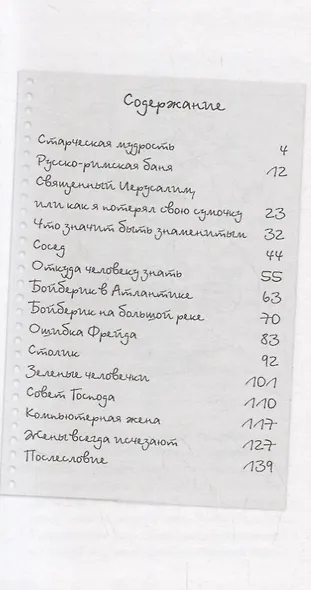 Содержание
Старческая мудрость 4
Русско-римская баня 12
Священный Иерусалим,
или как я потерял свою сумочку 23
Что значит быть знаменитым 32
Сосед 44
Откуда человеку знать 55
Бойберик в Атлантике 63
Бойберик на большой реке 70
Ошибка Фрейда 83
Столик 92
Зеленые человечки 101
Совет Господа 110
Компьютерная жена 117
Жены всегда исчезают 127
Послесловие 139